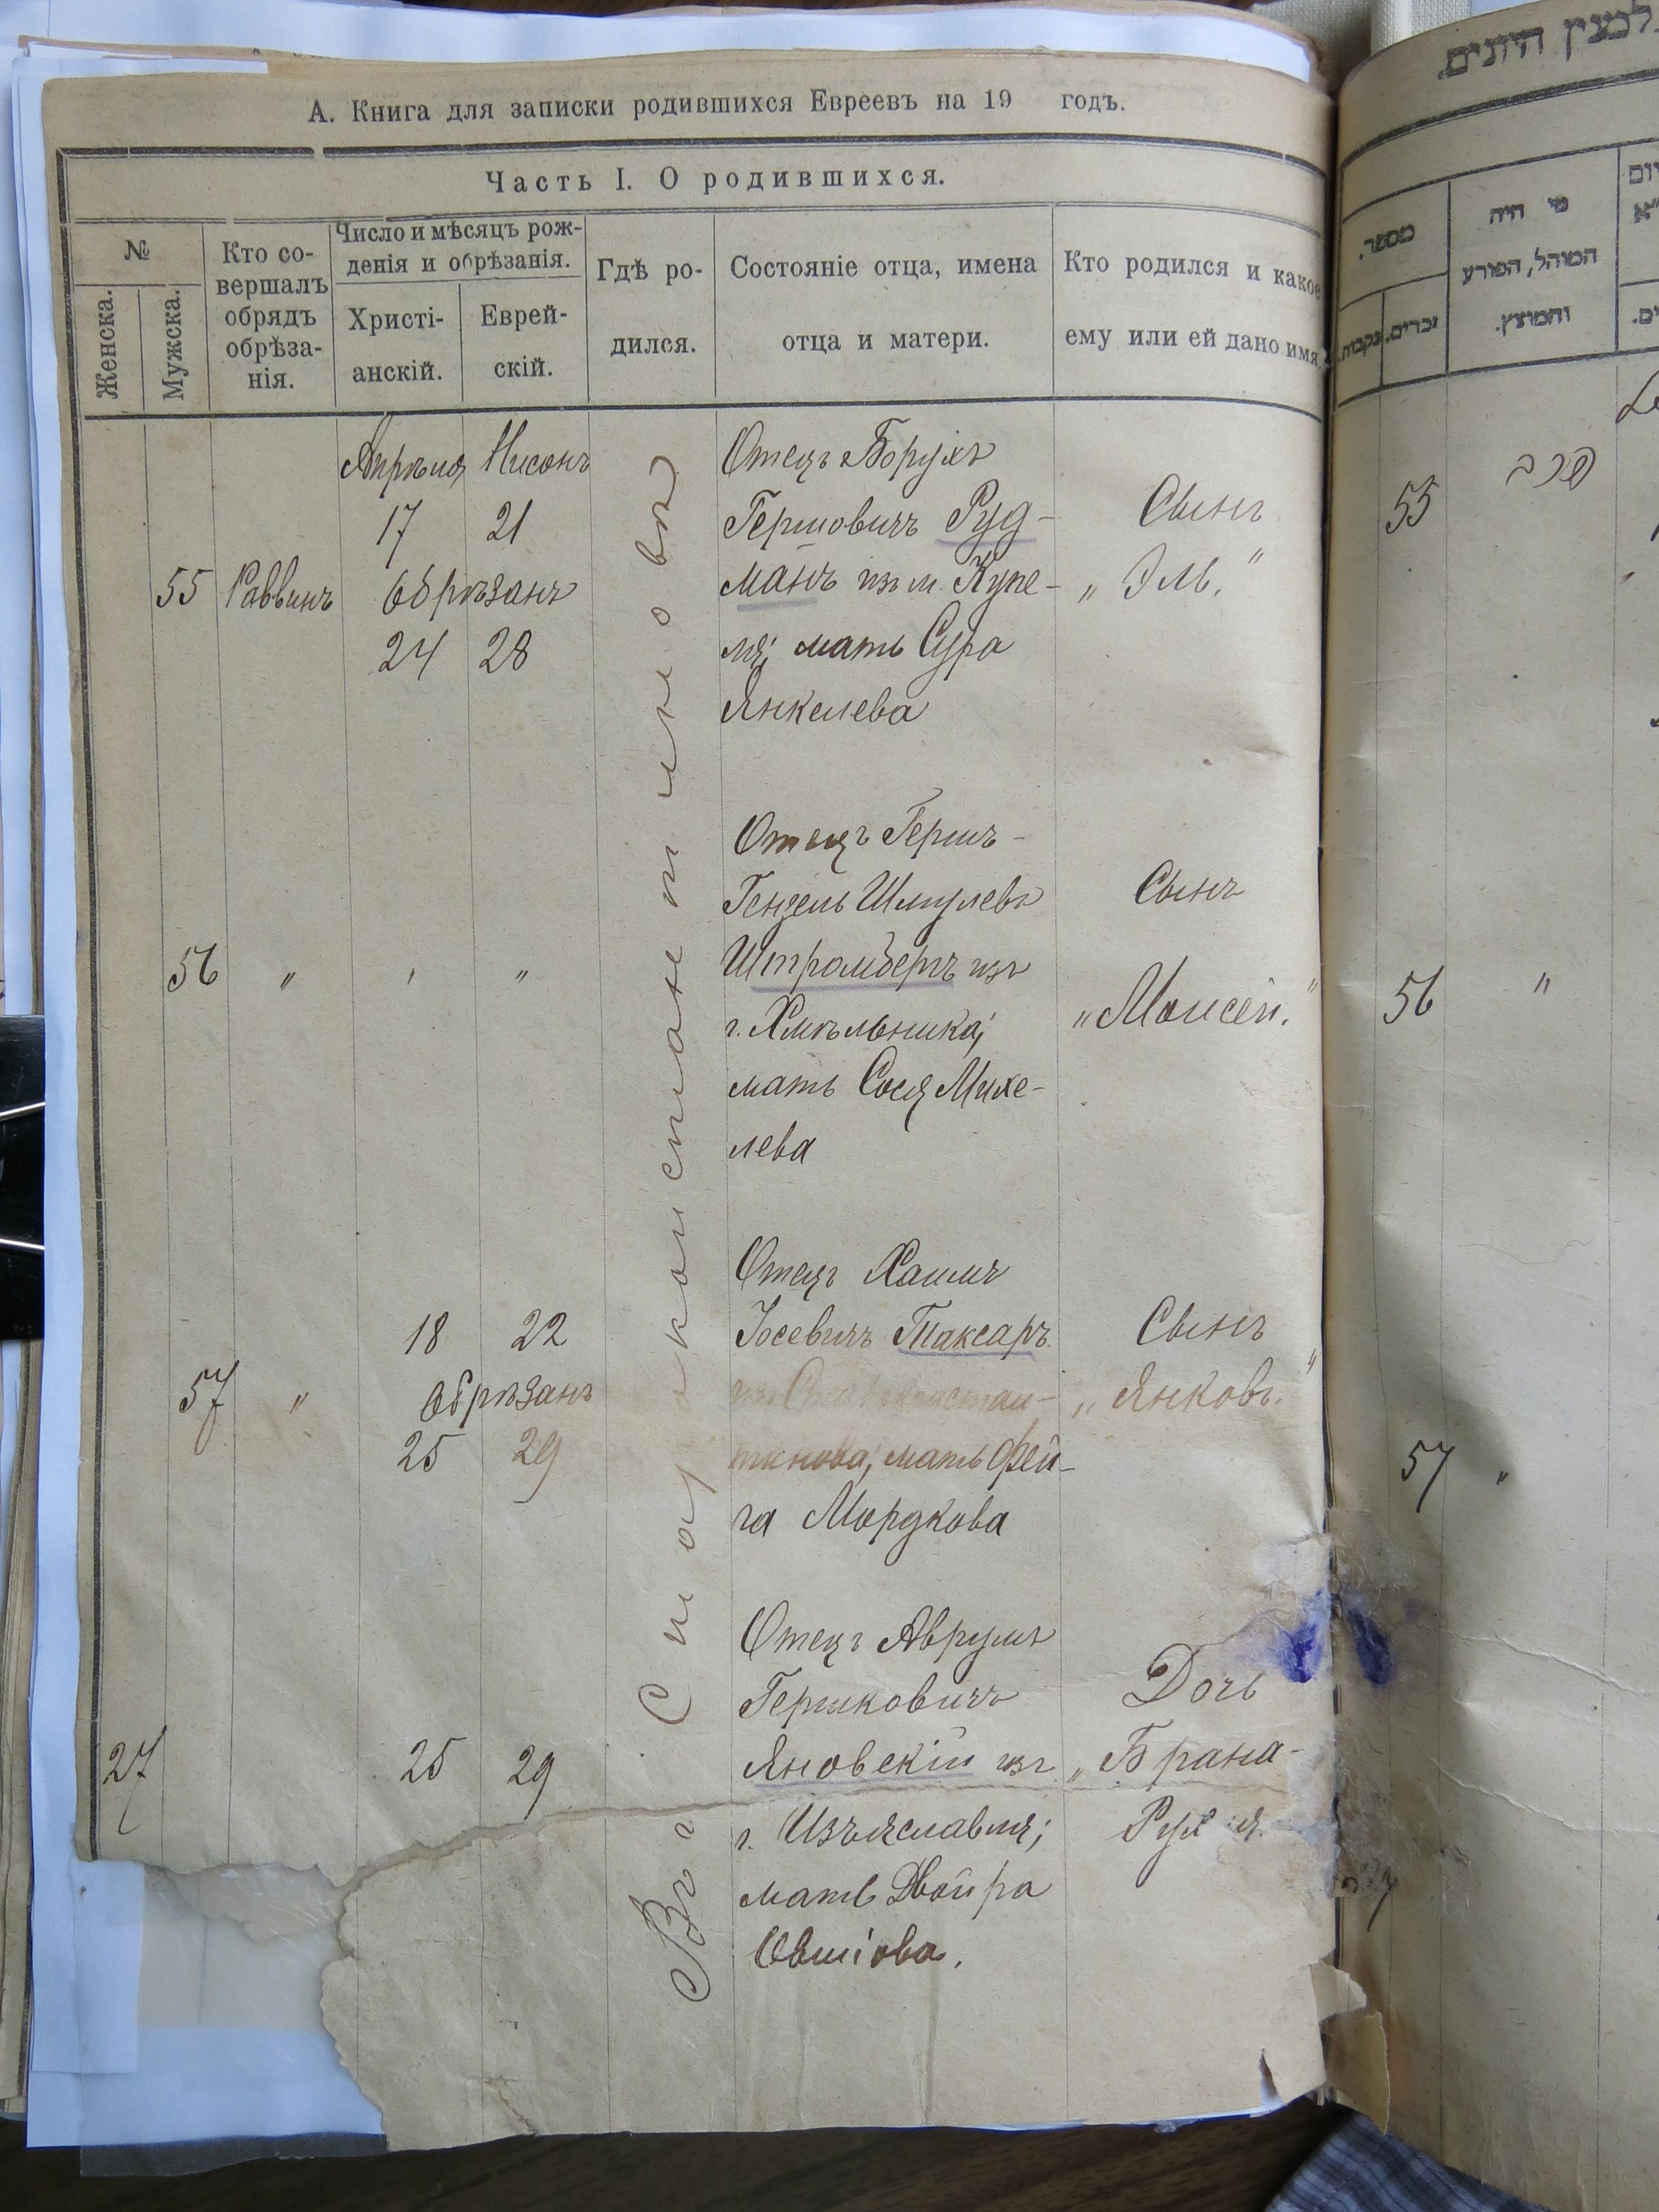 А. Книга для записки родившихся Евреевъ на 19 годъ.
Часть I. О родившихся.
№
Женска.
Мужска.
Кто со-
вершалъ
обрядъ
обрѣза-
нія.
Число и мѣсяцъ рож-
денія и обрѣзанія.
Христі-
анскій.
Еврей-
скій.
Гдѣ ро-
дился.
Состояніе отца, имена
отца и матери.
Кто родился и какое
ему или ей дано имя
Апрѣля Нисонъ
17 21
55 Раввинъ обрѣзанъ
24 28
Отецъ Борухъ
Гершовичъ Руд-
манъ изъ м. Купе-
ля; мать Сура
Янкелева
Сынъ
„Эль."
56 " " "
Отецъ Гершъ-
Гензель Шмулевъ
Штромбергъ изъ
г. Хмѣльника;
мать Сося Михе-
лева
Сынъ
„Моисей."
18 22
57 " обрѣзанъ
25 29
Отецъ Хаимъ
Іосевичъ Таксаръ
изъ Староконстан-
тинова; мать Фей-
га Мордкова
Сынъ
„Янковъ."
27 25 29
Отецъ Аврумъ
Гершковичъ
Яновскій изъ
г. Изъяславля;
мать Двойра
Овшіова.
Дочь
„Брана-
Рухля
Въ г. Староконстантиновѣ
למצין היונים.
מספר.
נקבות.
זכרים.
מי היה
המוהל, הפורע
והמוצץ.
55 הרב
56 "
57 "
27